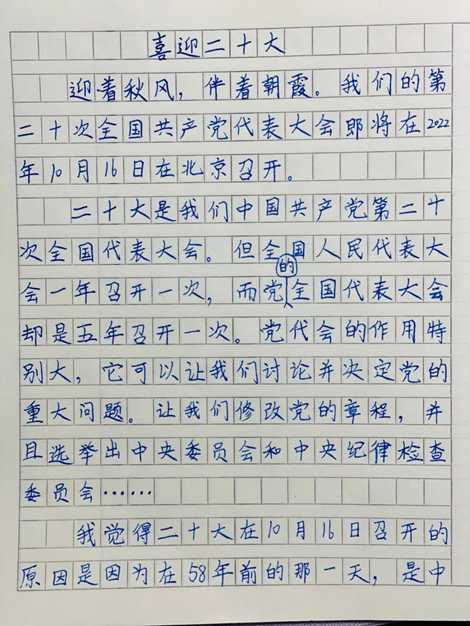 喜迎二十大
迎着秋风，伴着朝霞。我们的第
二十次全国共产党代表大会即将在2022
年10月16日在北京召开。
二十大是我们中国共产党第二十
次全国代表大会。但全国人民代表大
会一年召开一次，而党的全国代表大会
却是五年召开一次。党代会的作用特
别大，它可以让我们讨论并决定党的
重大问题。让我们修改党的章程，并
且选举出中央委员会和中央纪律检查
委员会……
我觉得二十大在10月16日召开的
原因是因为在58年前的那一天，是中